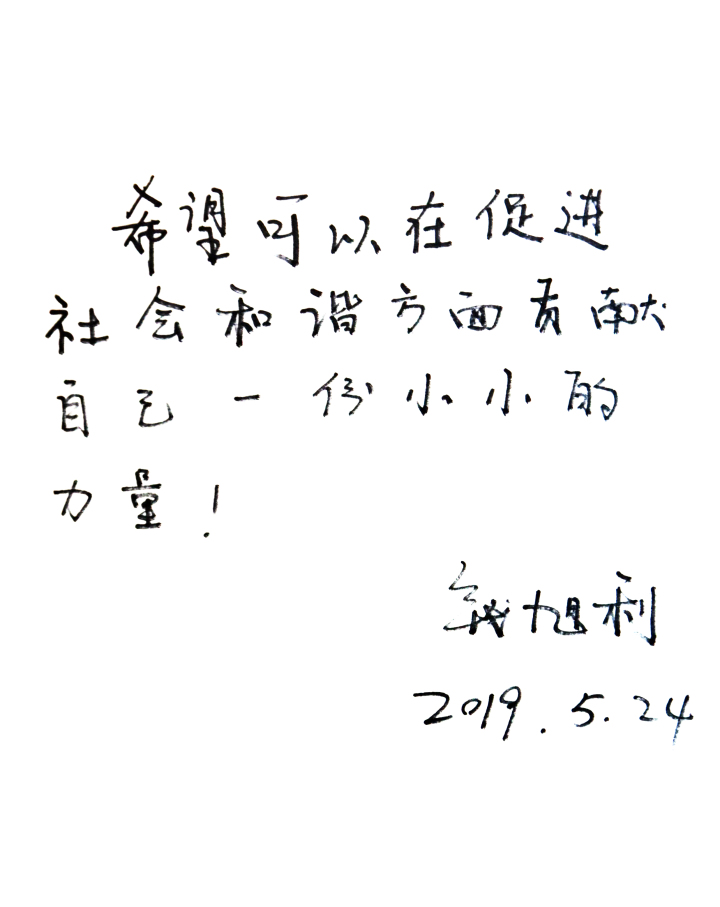 希望可以在促进
社会和谐方面贡献
自己一份小小的
力量!
旭利
2019.5.24